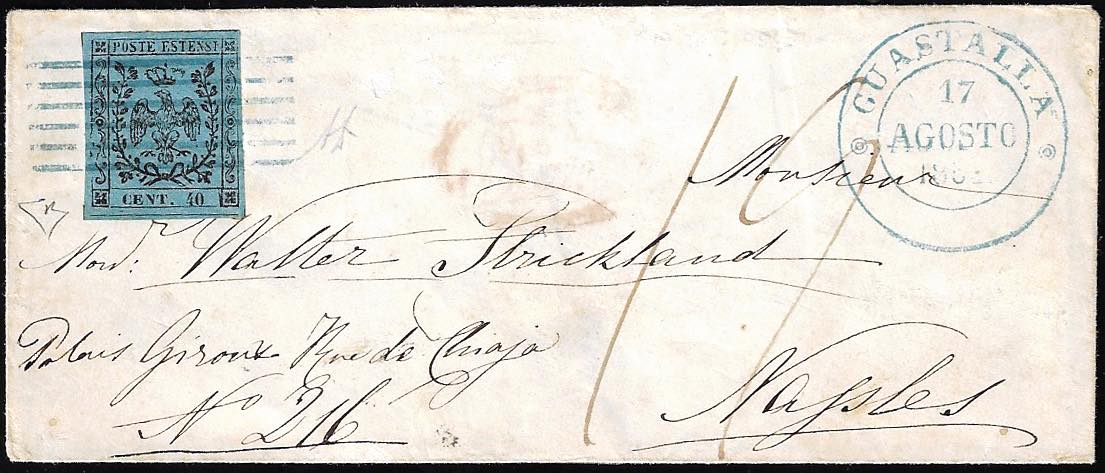 POSTE ESTENSI
CENT. 40
GUASTALLA
17
AGOSTO
Monsieur
Walter Strickland
Palais Giroux Rue de Chiaja
No 216
Naples